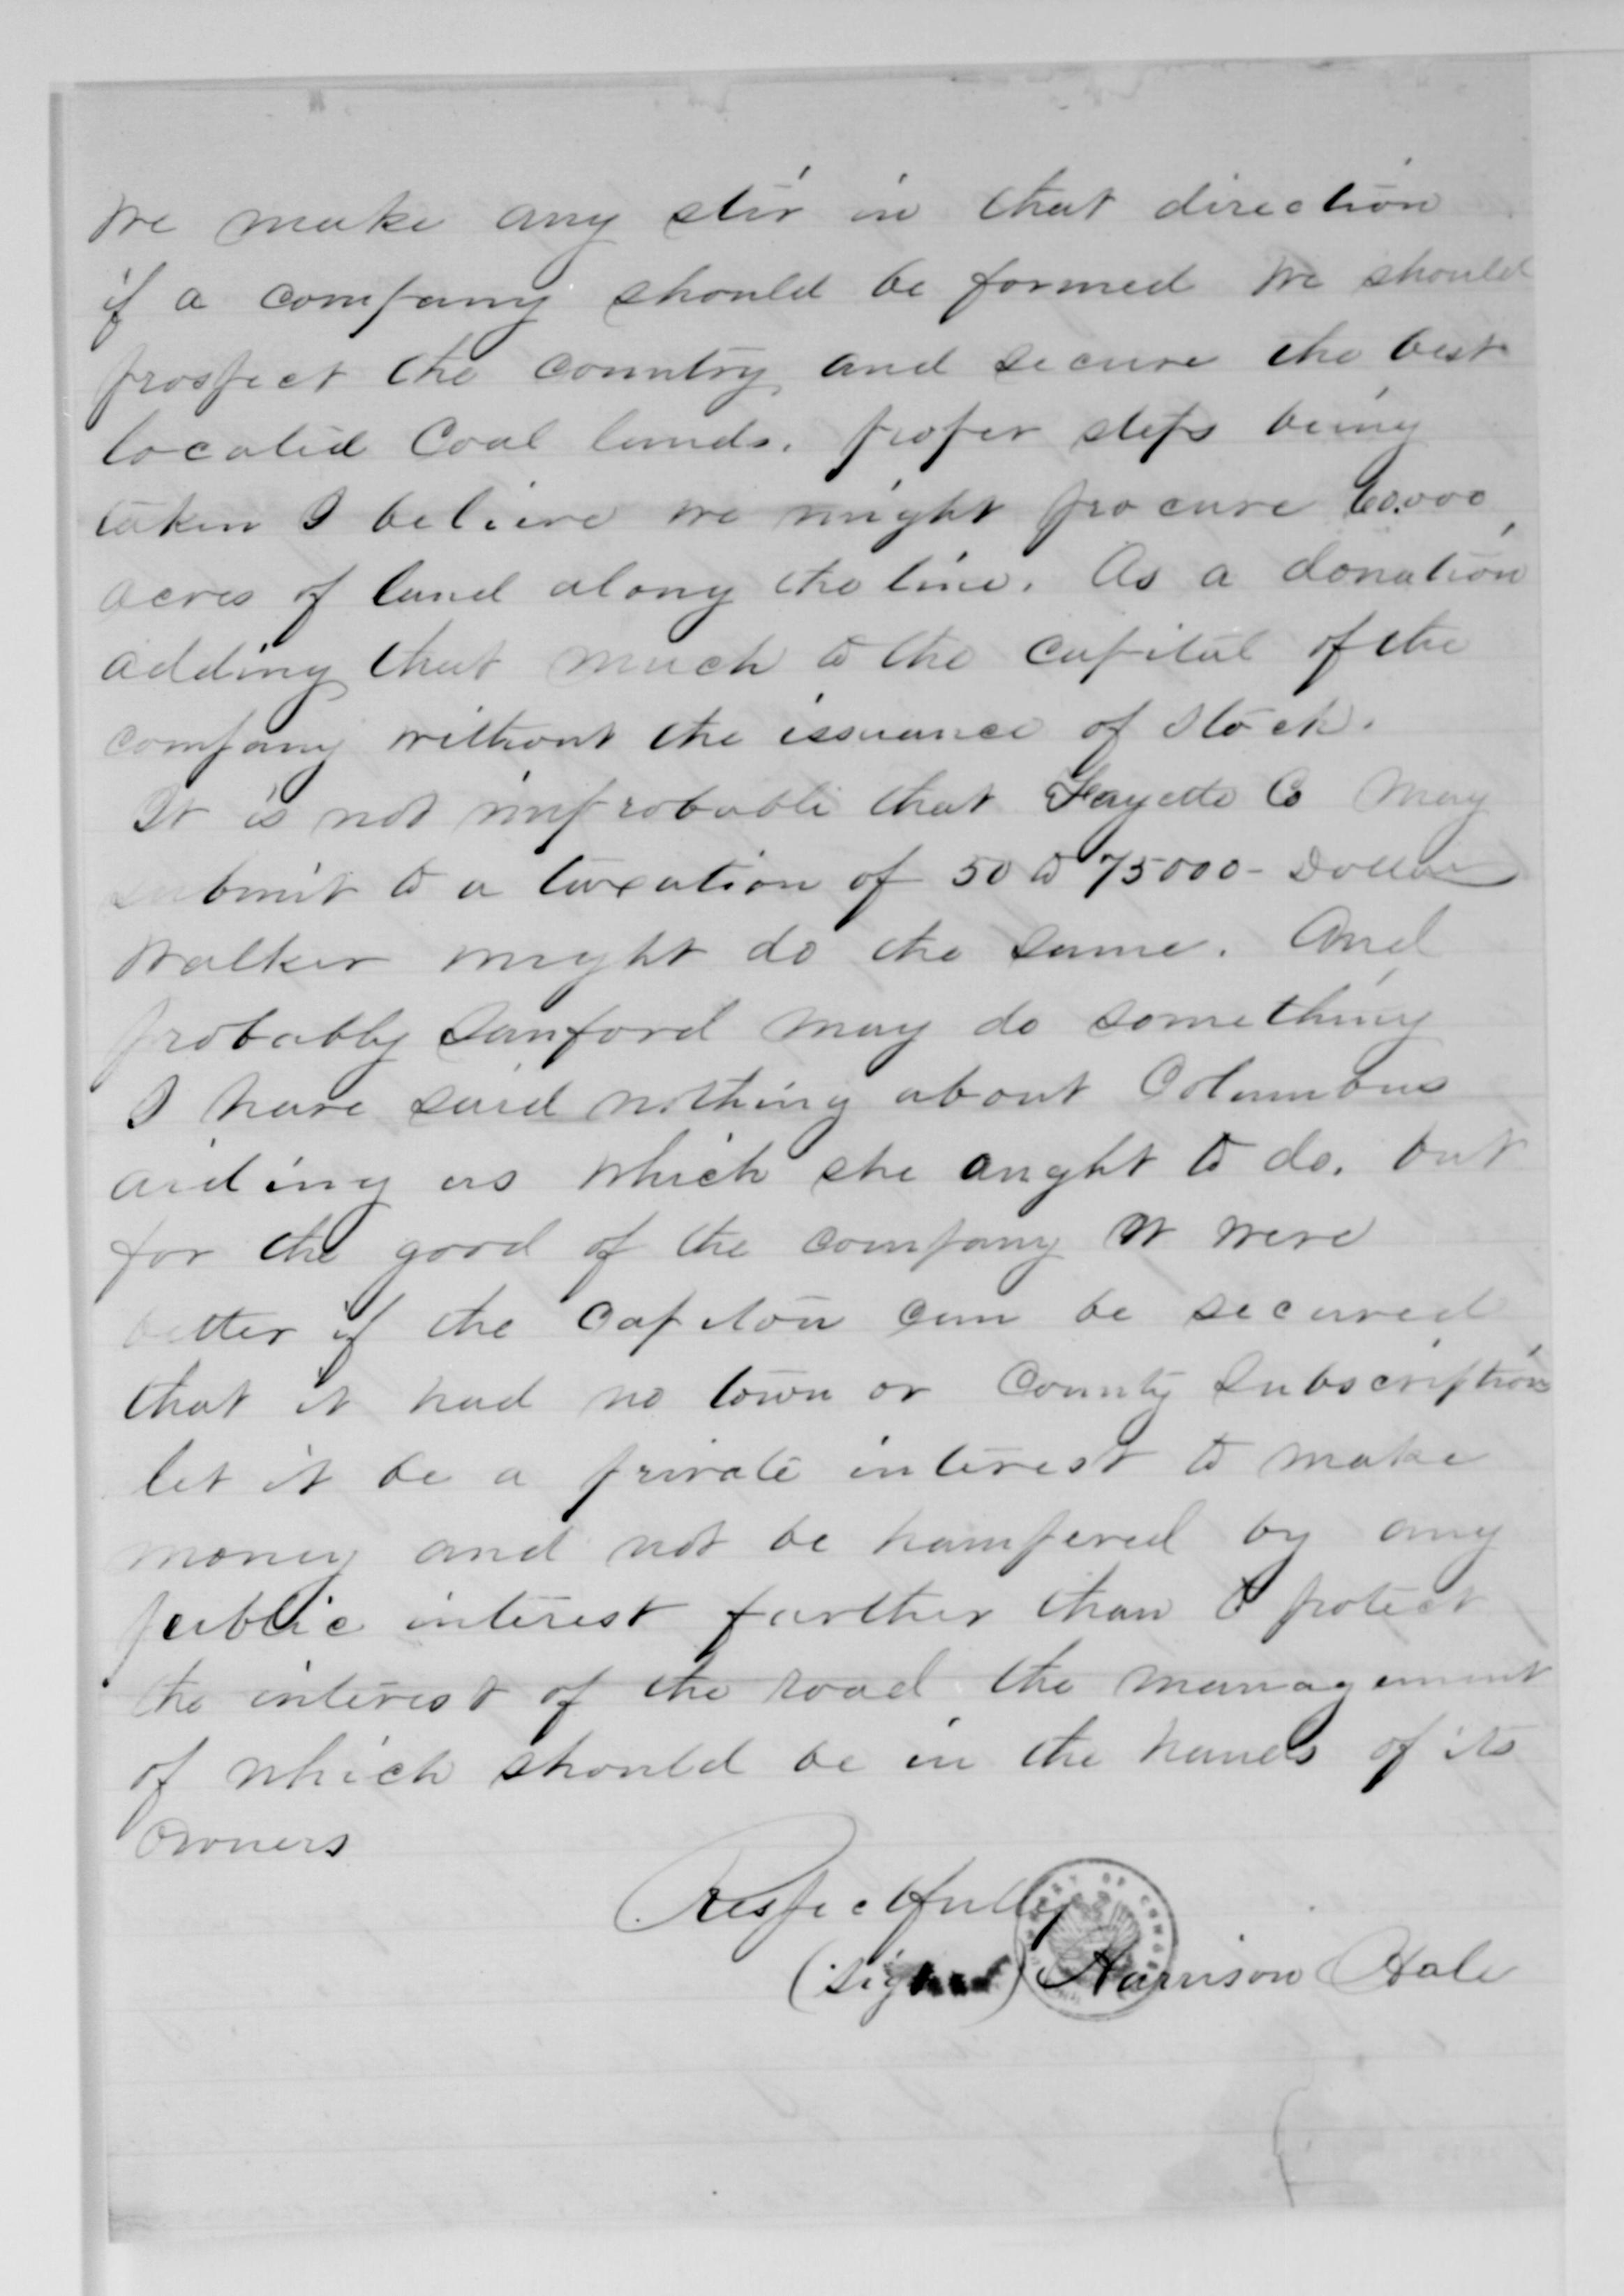 We make any stir in that direction
if a company should be formed We should
prospect the country and secure the best
located Coal lands. proper steps being
taken I believe we might procure 60.000
acres of land along the line. As a donation
adding that much to the capital of the
company without the issuance of stock.
It is not improbable that Fayette Co May
submit to a taxation of 50 to 75000 - Dollars
Walker might do the same. And
probably Sanford may do something
I have said nothing about Columbus
aiding us which she aught to do. but
for the good of the company it were
better if the Capital can be secured
that it had no town or County Subscription
let it be a private interest to make
money and not be hampered by any
public interest further than to protect
the interest of the road the management
of which should be in the hands of its
Owners
Respectfully
(signed) Harrison Hale